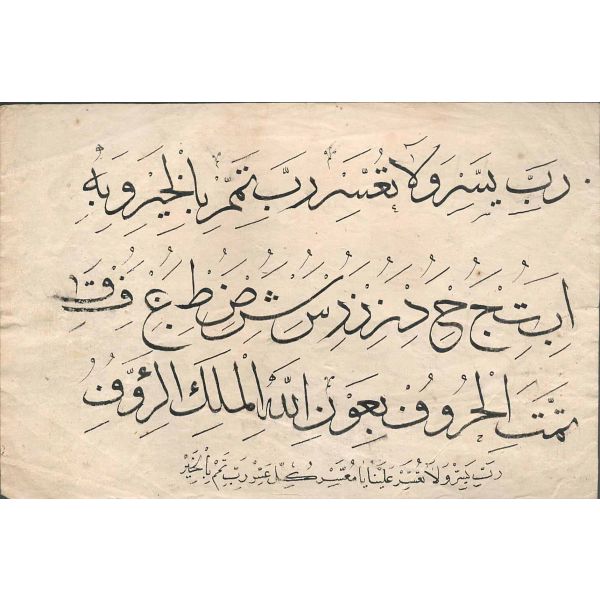 رَبِّ يَسِّرْ وَلَا تُعَسِّرْ رَبِّ تَمِّمْ بِالْخَيْرِ وَبِهِ
ا ب ت ث ج ح خ د ذ ر ز س ش ص ض ط ع غ ف ق
تَمَّتِ الْحُرُوفُ بِعَوْنِ اللّٰهِ الْمَلِكِ الرَّؤُفِ
رَبِّ يَسِّرْ وَلَا تُعَسِّرْ عَلَيْنَا يَا مُيَسِّرَ كُلِّ عَسِيرٍ رَبِّ تَمِّمْ بِالْخَيْرِ